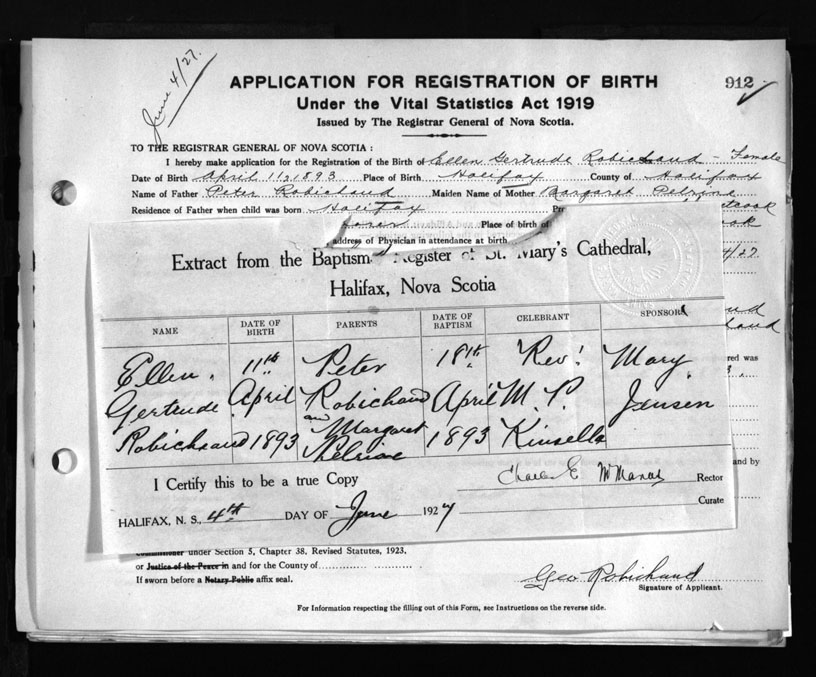 June 4/27.
APPLICATION FOR REGISTRATION OF BIRTH 912
Under the Vital Statistics Act 1919
Issued by The Registrar General of Nova Scotia.
TO THE REGISTRAR GENERAL OF NOVA SCOTIA :
I hereby make application for the Registration of the Birth of Ellen Gertrude Robichaud - Female
Date of Birth April 11, 1893 Place of Birth Halifax County of Halifax
Name of Father Peter Robichaud Maiden Name of Mother Margaret Pelrine
Residence of Father when child was born Halifax
Place of birth of
address of Physician in attendance at birth
4/27
Extract from the Baptismal Register of St. Mary's Cathedral,
Halifax, Nova Scotia
NAME DATE OF BIRTH PARENTS DATE OF BAPTISM CELEBRANT SPONSORS
Ellen. 11th Peter 18th Rev. Mary
Gertrude April Robichaud April M. P. Jensen
and
Robichaud 1893 Margaret 1893 Kinsella
Pelrine
red was
and by
I Certify this to be a true Copy
Charles E McManus Rector
HALIFAX, N. S., 4th DAY OF June 1927 Curate
Commissioner under Section 5, Chapter 38, Revised Statutes, 1923.
or Justice of the Peace in and for the County of
If sworn before a Notary Public affix seal.
Geo Robichaud
Signature of Applicant.
For Information respecting the filling out of this Form, see Instructions on the reverse side.